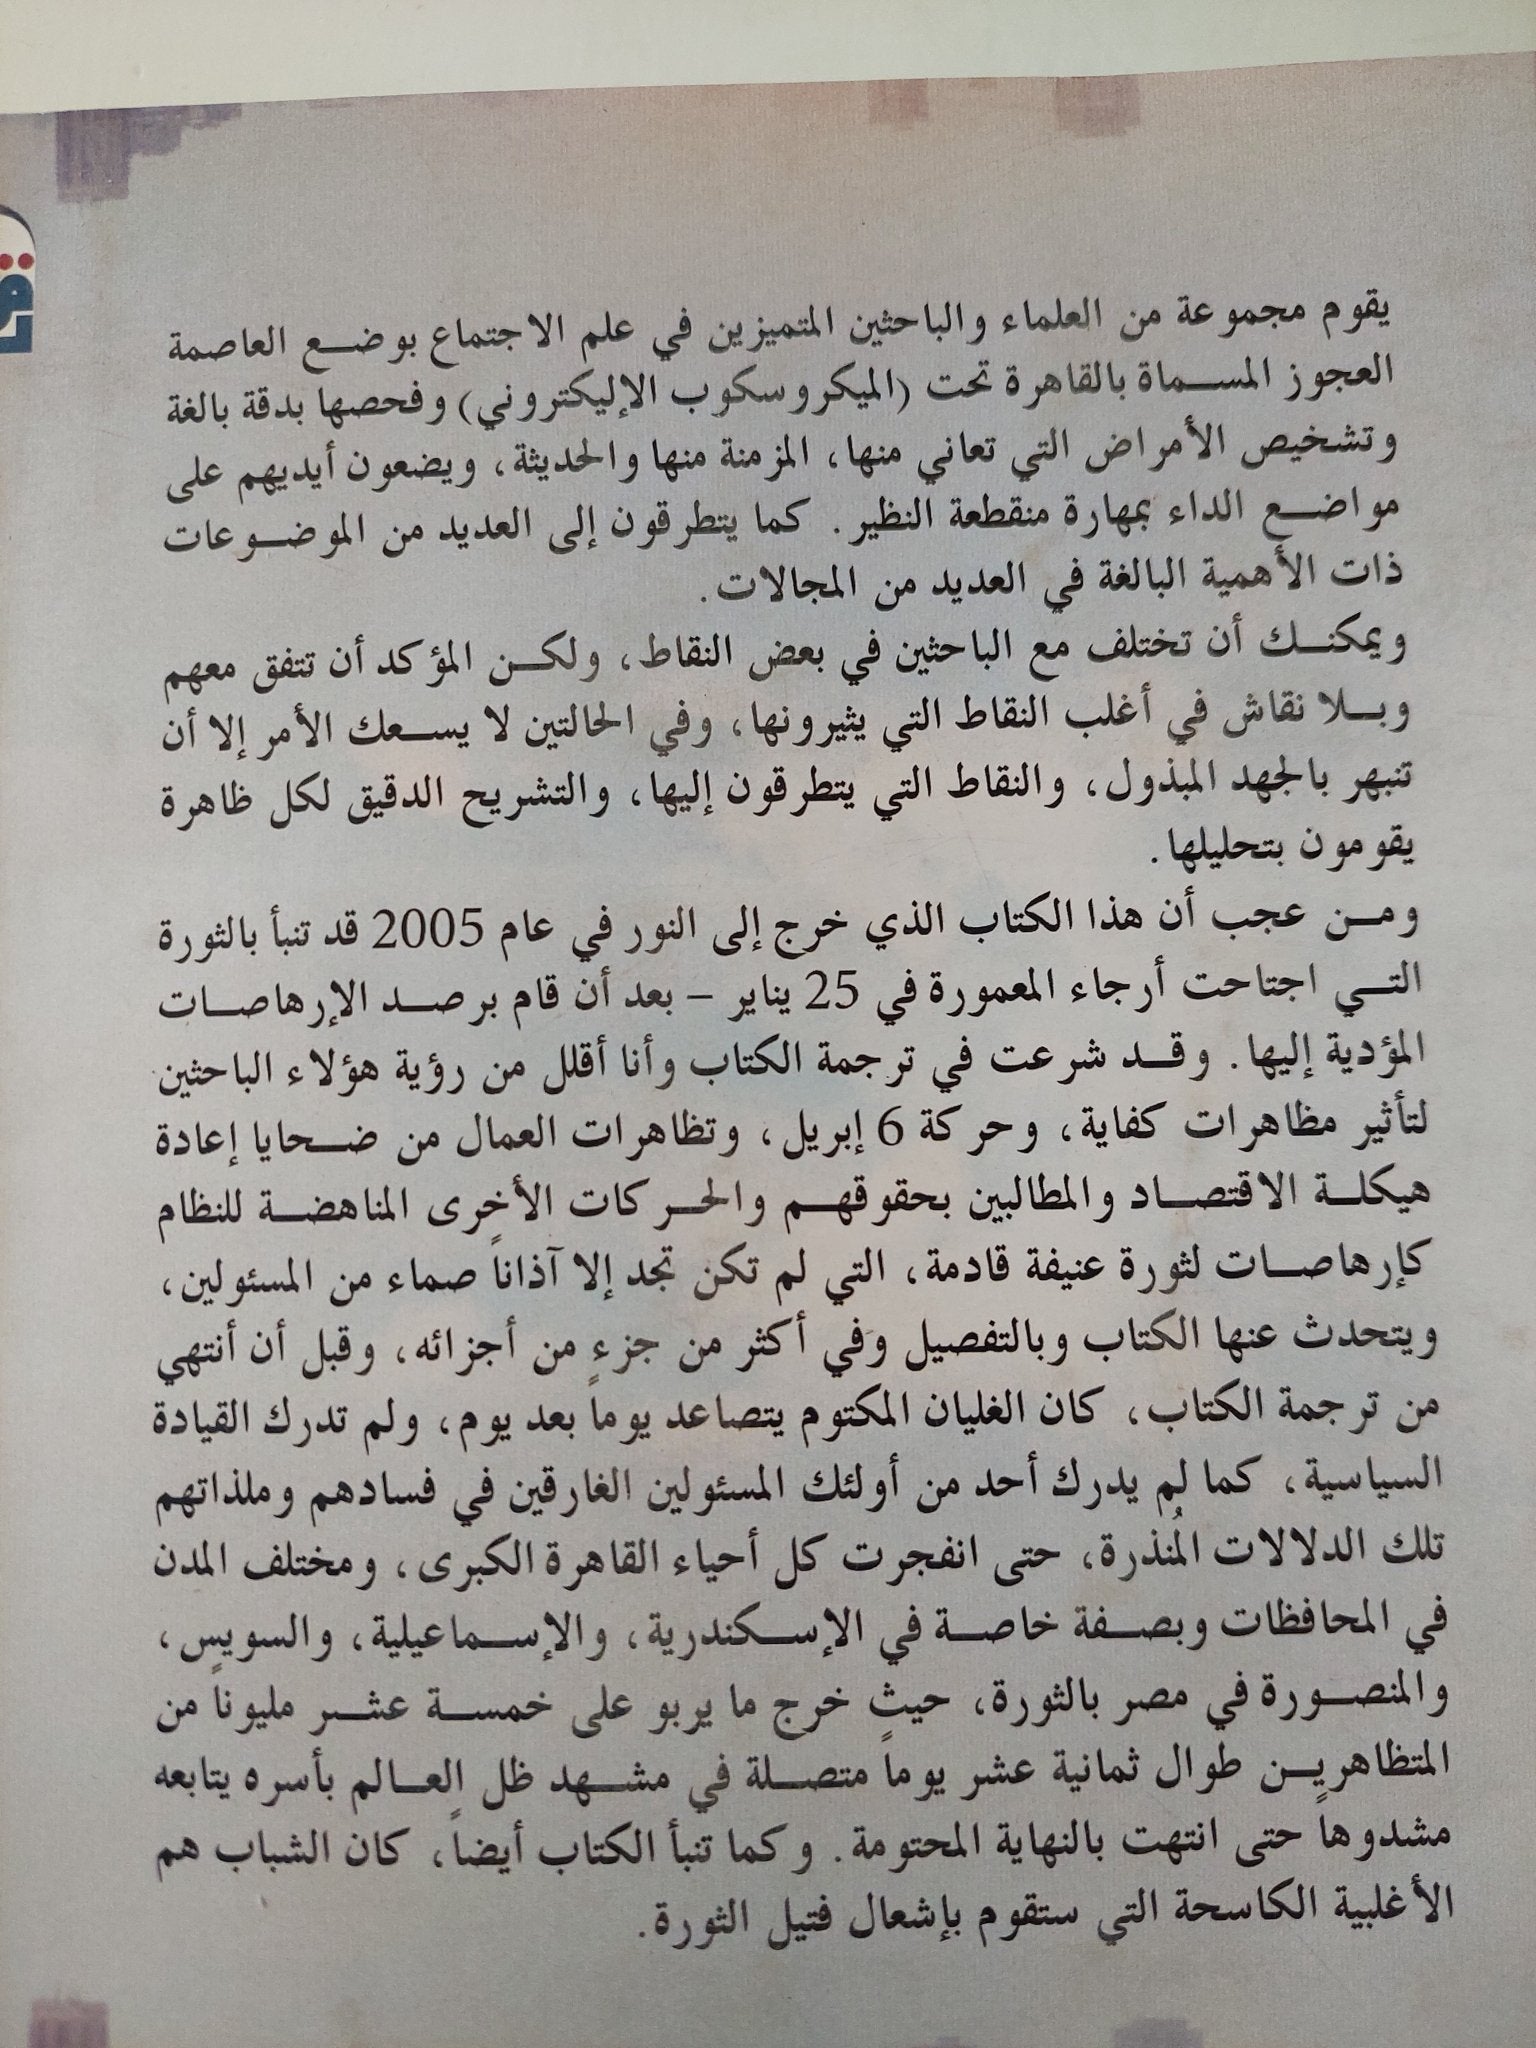 يقوم مجموعة من العلماء والباحثين المتميزين في علم الاجتماع بوضع العاصمة
العجوز المسماة بالقاهرة تحت (الميكروسكوب الإليكتروني) وفحصها بدقة بالغة
وتشخيص الأمراض التي تعاني منها، المزمنة منها والحديثة، ويضعون أيديهم على
مواضع الداء بمهارة منقطعة النظير. كما يتطرقون إلى العديد من الموضوعات
ذات الأهمية البالغة في العديد من المجالات.
ويمكنك أن تختلف مع الباحثين في بعض النقاط، ولكن المؤكد أن تتفق معهم
وبلا نقاش في أغلب النقاط التي يثيرونها، وفي الحالتين لا يسعك الأمر إلا أن
تنبهر بالجهد المبذول، والنقاط التي يتطرقون إليها، والتشريح الدقيق لكل ظاهرة
يقومون بتحليلها.
ومن عجب أن هذا الكتاب الذي خرج إلى النور في عام 2005 قد تنبأ بالثورة
التي اجتاحت أرجاء المعمورة في 25 يناير – بعد أن قام برصد الإرهاصات
المؤدية إليها. وقد شرعت في ترجمة الكتاب وأنا أقلل من رؤية هؤلاء الباحثين
لتأثير مظاهرات كفاية، وحركة 6 إبريل، وتظاهرات العمال من ضحايا إعادة
هيكلة الاقتصاد والمطالبين بحقوقهم والحركات الأخرى المناهضة للنظام
كإرهاصات لثورة عنيفة قادمة، التي لم تكن تجد إلا آذاناً صماء من المسئولين،
ويتحدث عنها الكتاب وبالتفصيل وفي أكثر من جزء من أجزائه، وقبل أن أنتهي
من ترجمة الكتاب، كان الغليان المكتوم يتصاعد يوماً بعد يوم، ولم تدرك القيادة
السياسية، كما لم يدرك أحد من أولئك المسئولين الغارقين في فسادهم وملذاتهم
تلك الدلالات المُنذرة، حتى انفجرت كل أحياء القاهرة الكبرى، ومختلف المدن
في المحافظات وبصفة خاصة في الإسكندرية، والإسماعيلية، والسويس،
والمنصورة في مصر بالثورة، حيث خرج ما يربو على خمسة عشر مليوناً من
المتظاهرين طوال ثمانية عشر يوماً متصلة في مشهد ظل العالم بأسره يتابعه
مشدوهاً حتى انتهت بالنهاية المحتومة. وكما تنبأ الكتاب أيضاً، كان الشباب هم
الأغلبية الكاسحة التي ستقوم بإشعال فتيل الثورة.